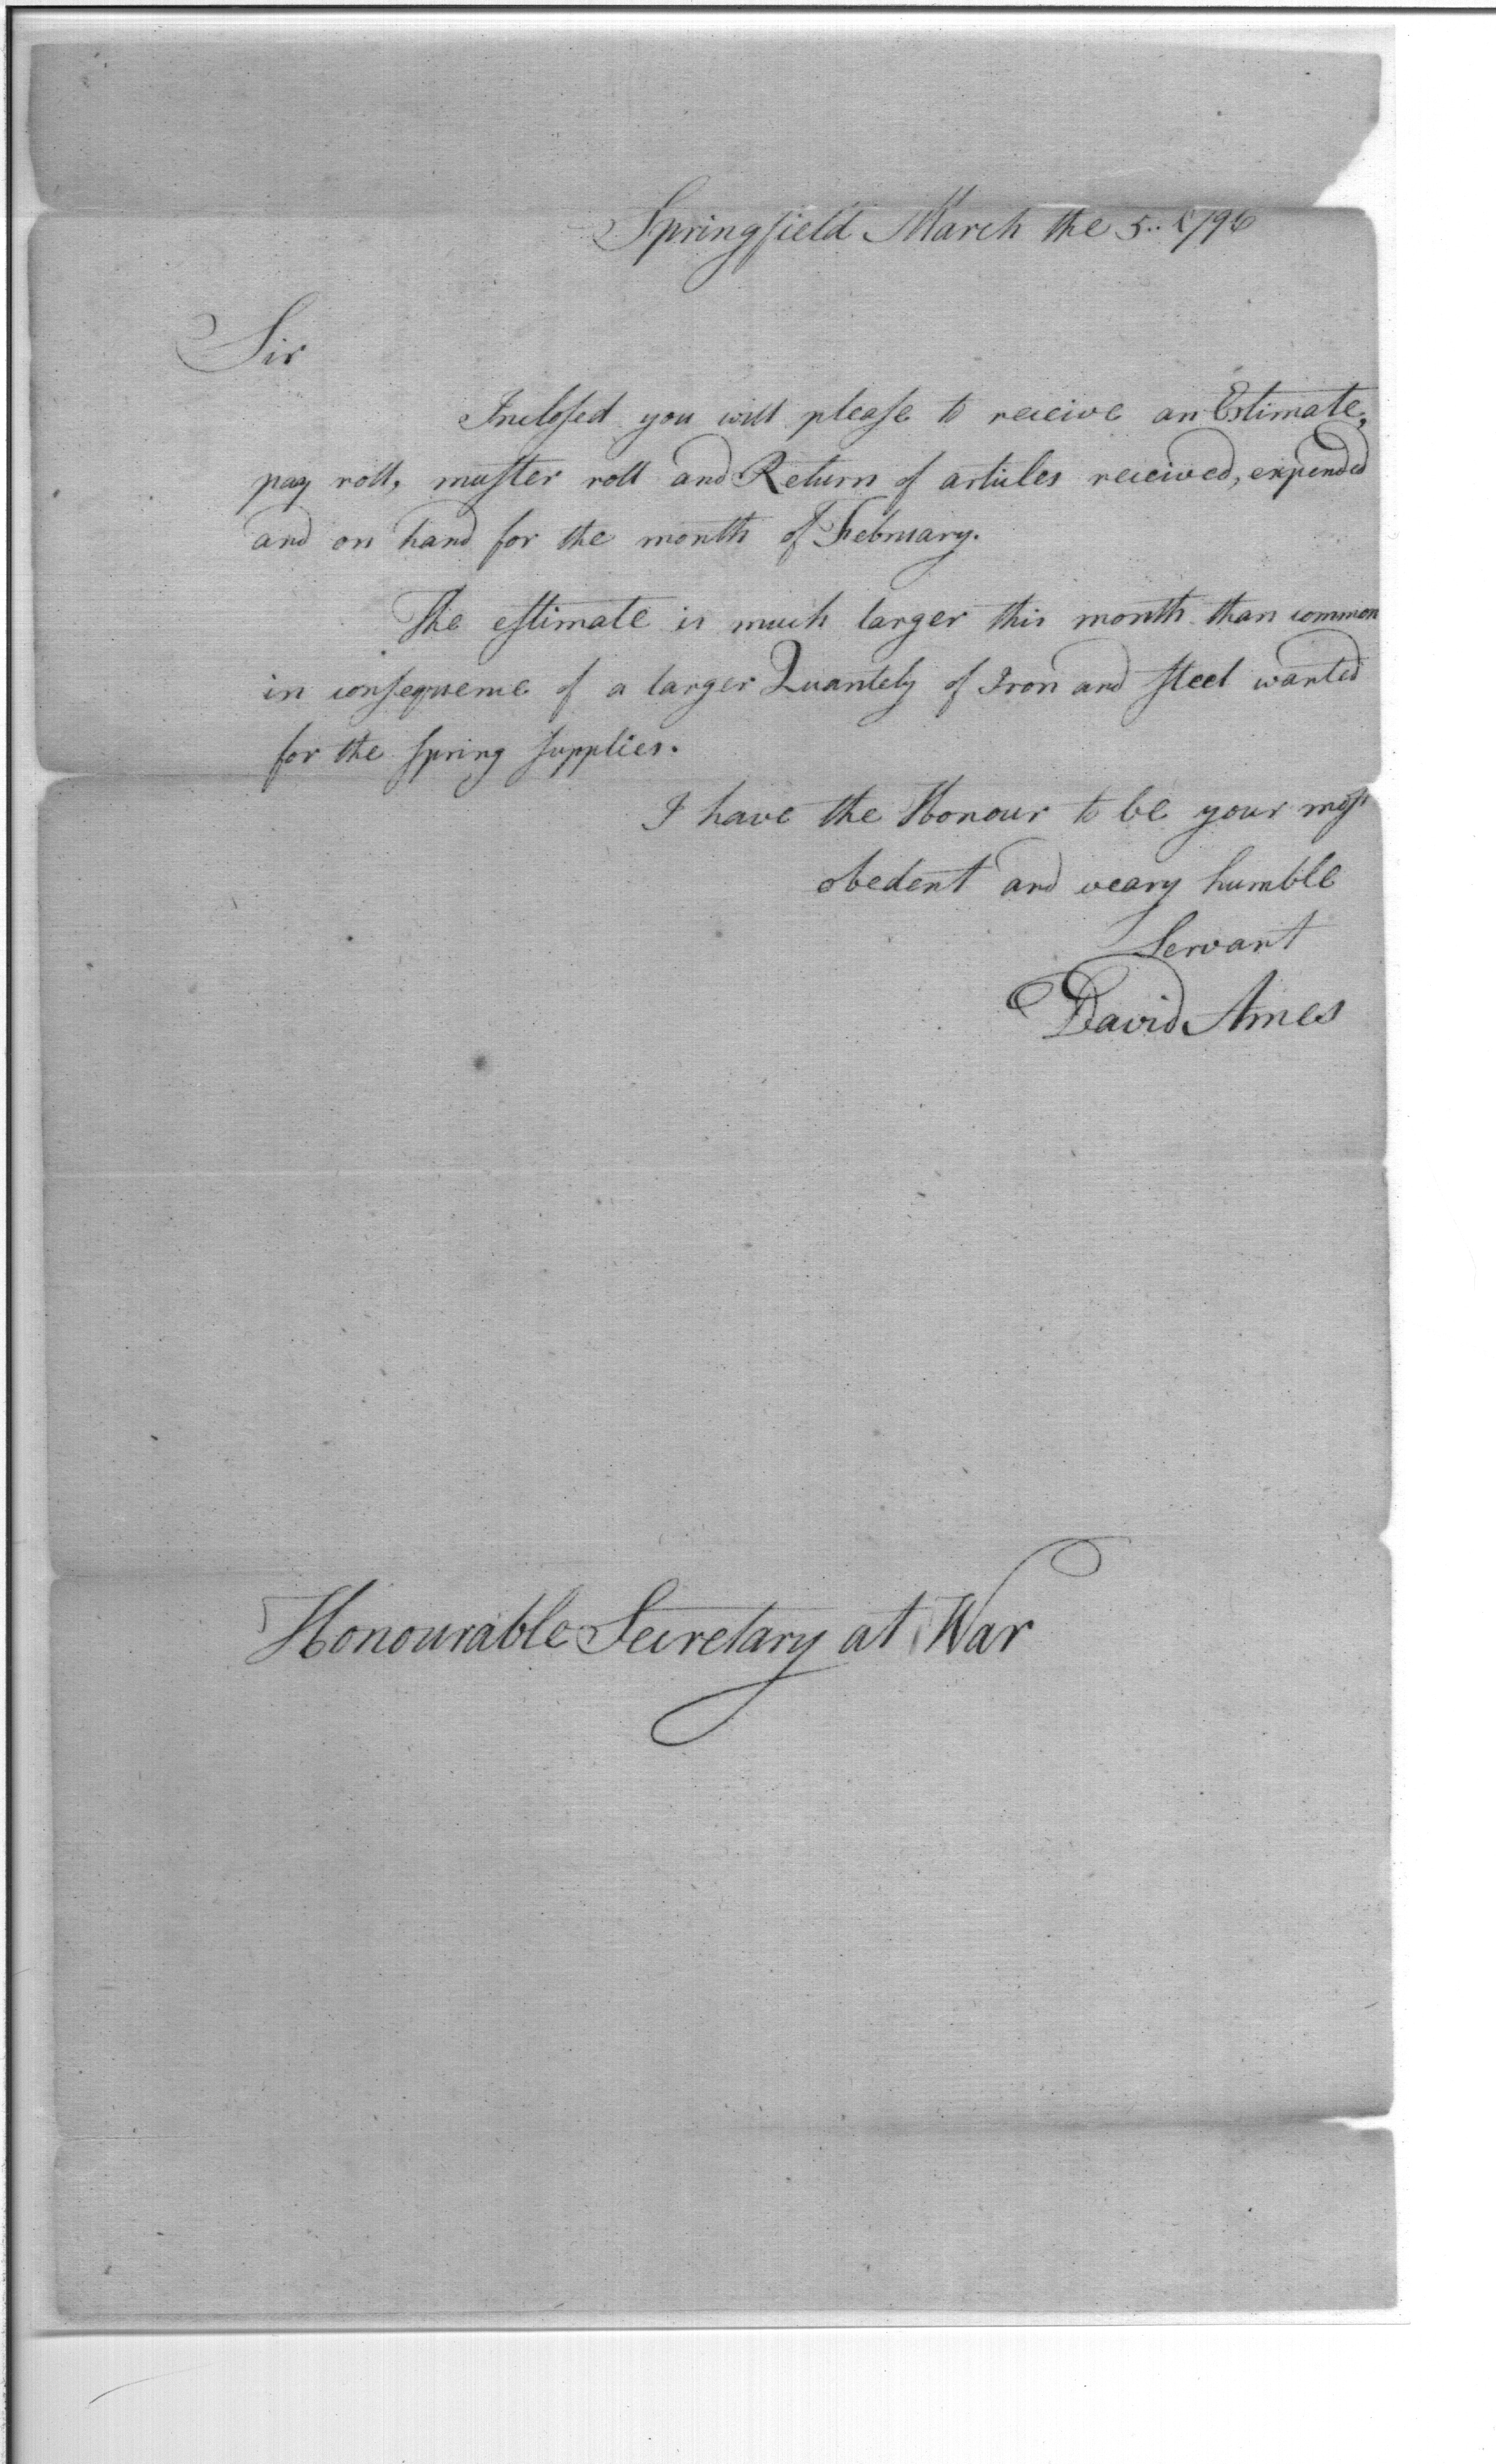 Springfield March the 5.. 1796
Sir
Inclosed you will please to receive an Estimate,
pay roll, muster roll and Return of articles received, expended
and on hand for the month of February.
The estimate is much larger this month than common
in consequence of a larger Quantety of Iron and steel wanted
for the spring supplies.
I have the Honour to be your most
obedent and veary humble
Servant
David Ames
Honourable Secretary at War